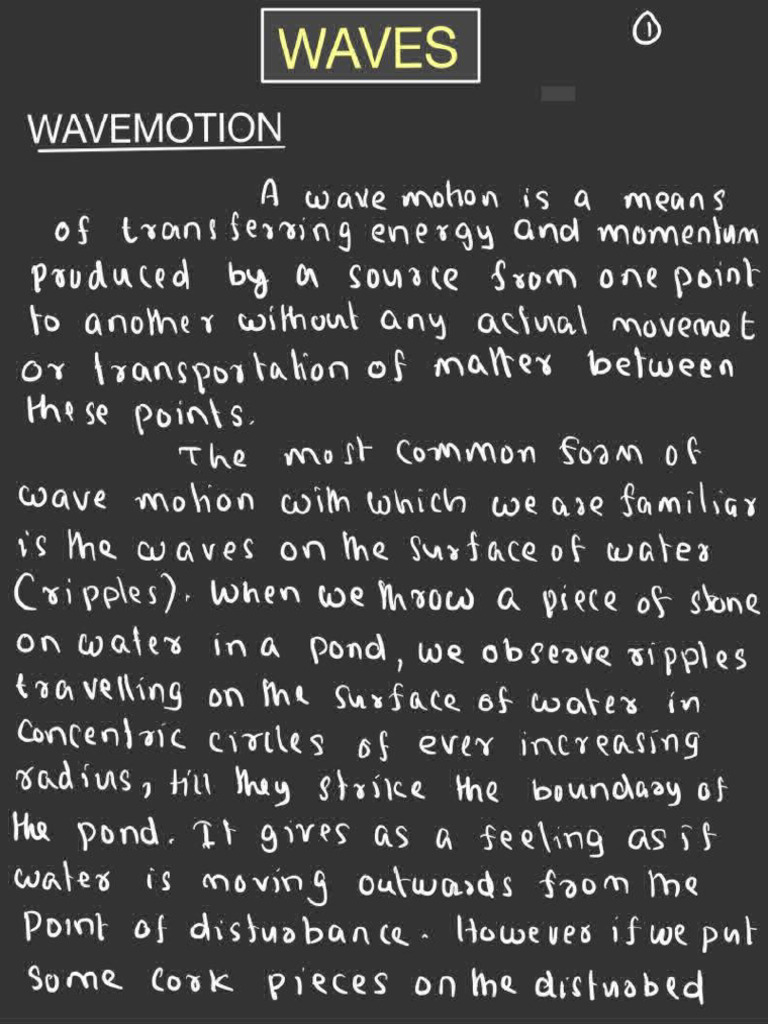 WAVES
①
WAVEMOTION
A wave motion is a means
of transferring energy and momentum
produced by a source from one point
to another without any actual movemet
or transportation of matter between
these points.
The most common form of
wave motion with which we are familiar
is the waves on the surface of water
(ripples). When we throw a piece of stone
on water in a pond, we observe ripples
travelling on the surface of water in
concentric circles of ever increasing
radius, till they strike the boundary of
the pond. It gives as a feeling as if
water is moving outwards from the
point of disturbance. However if we put
some cork pieces on the disturbed